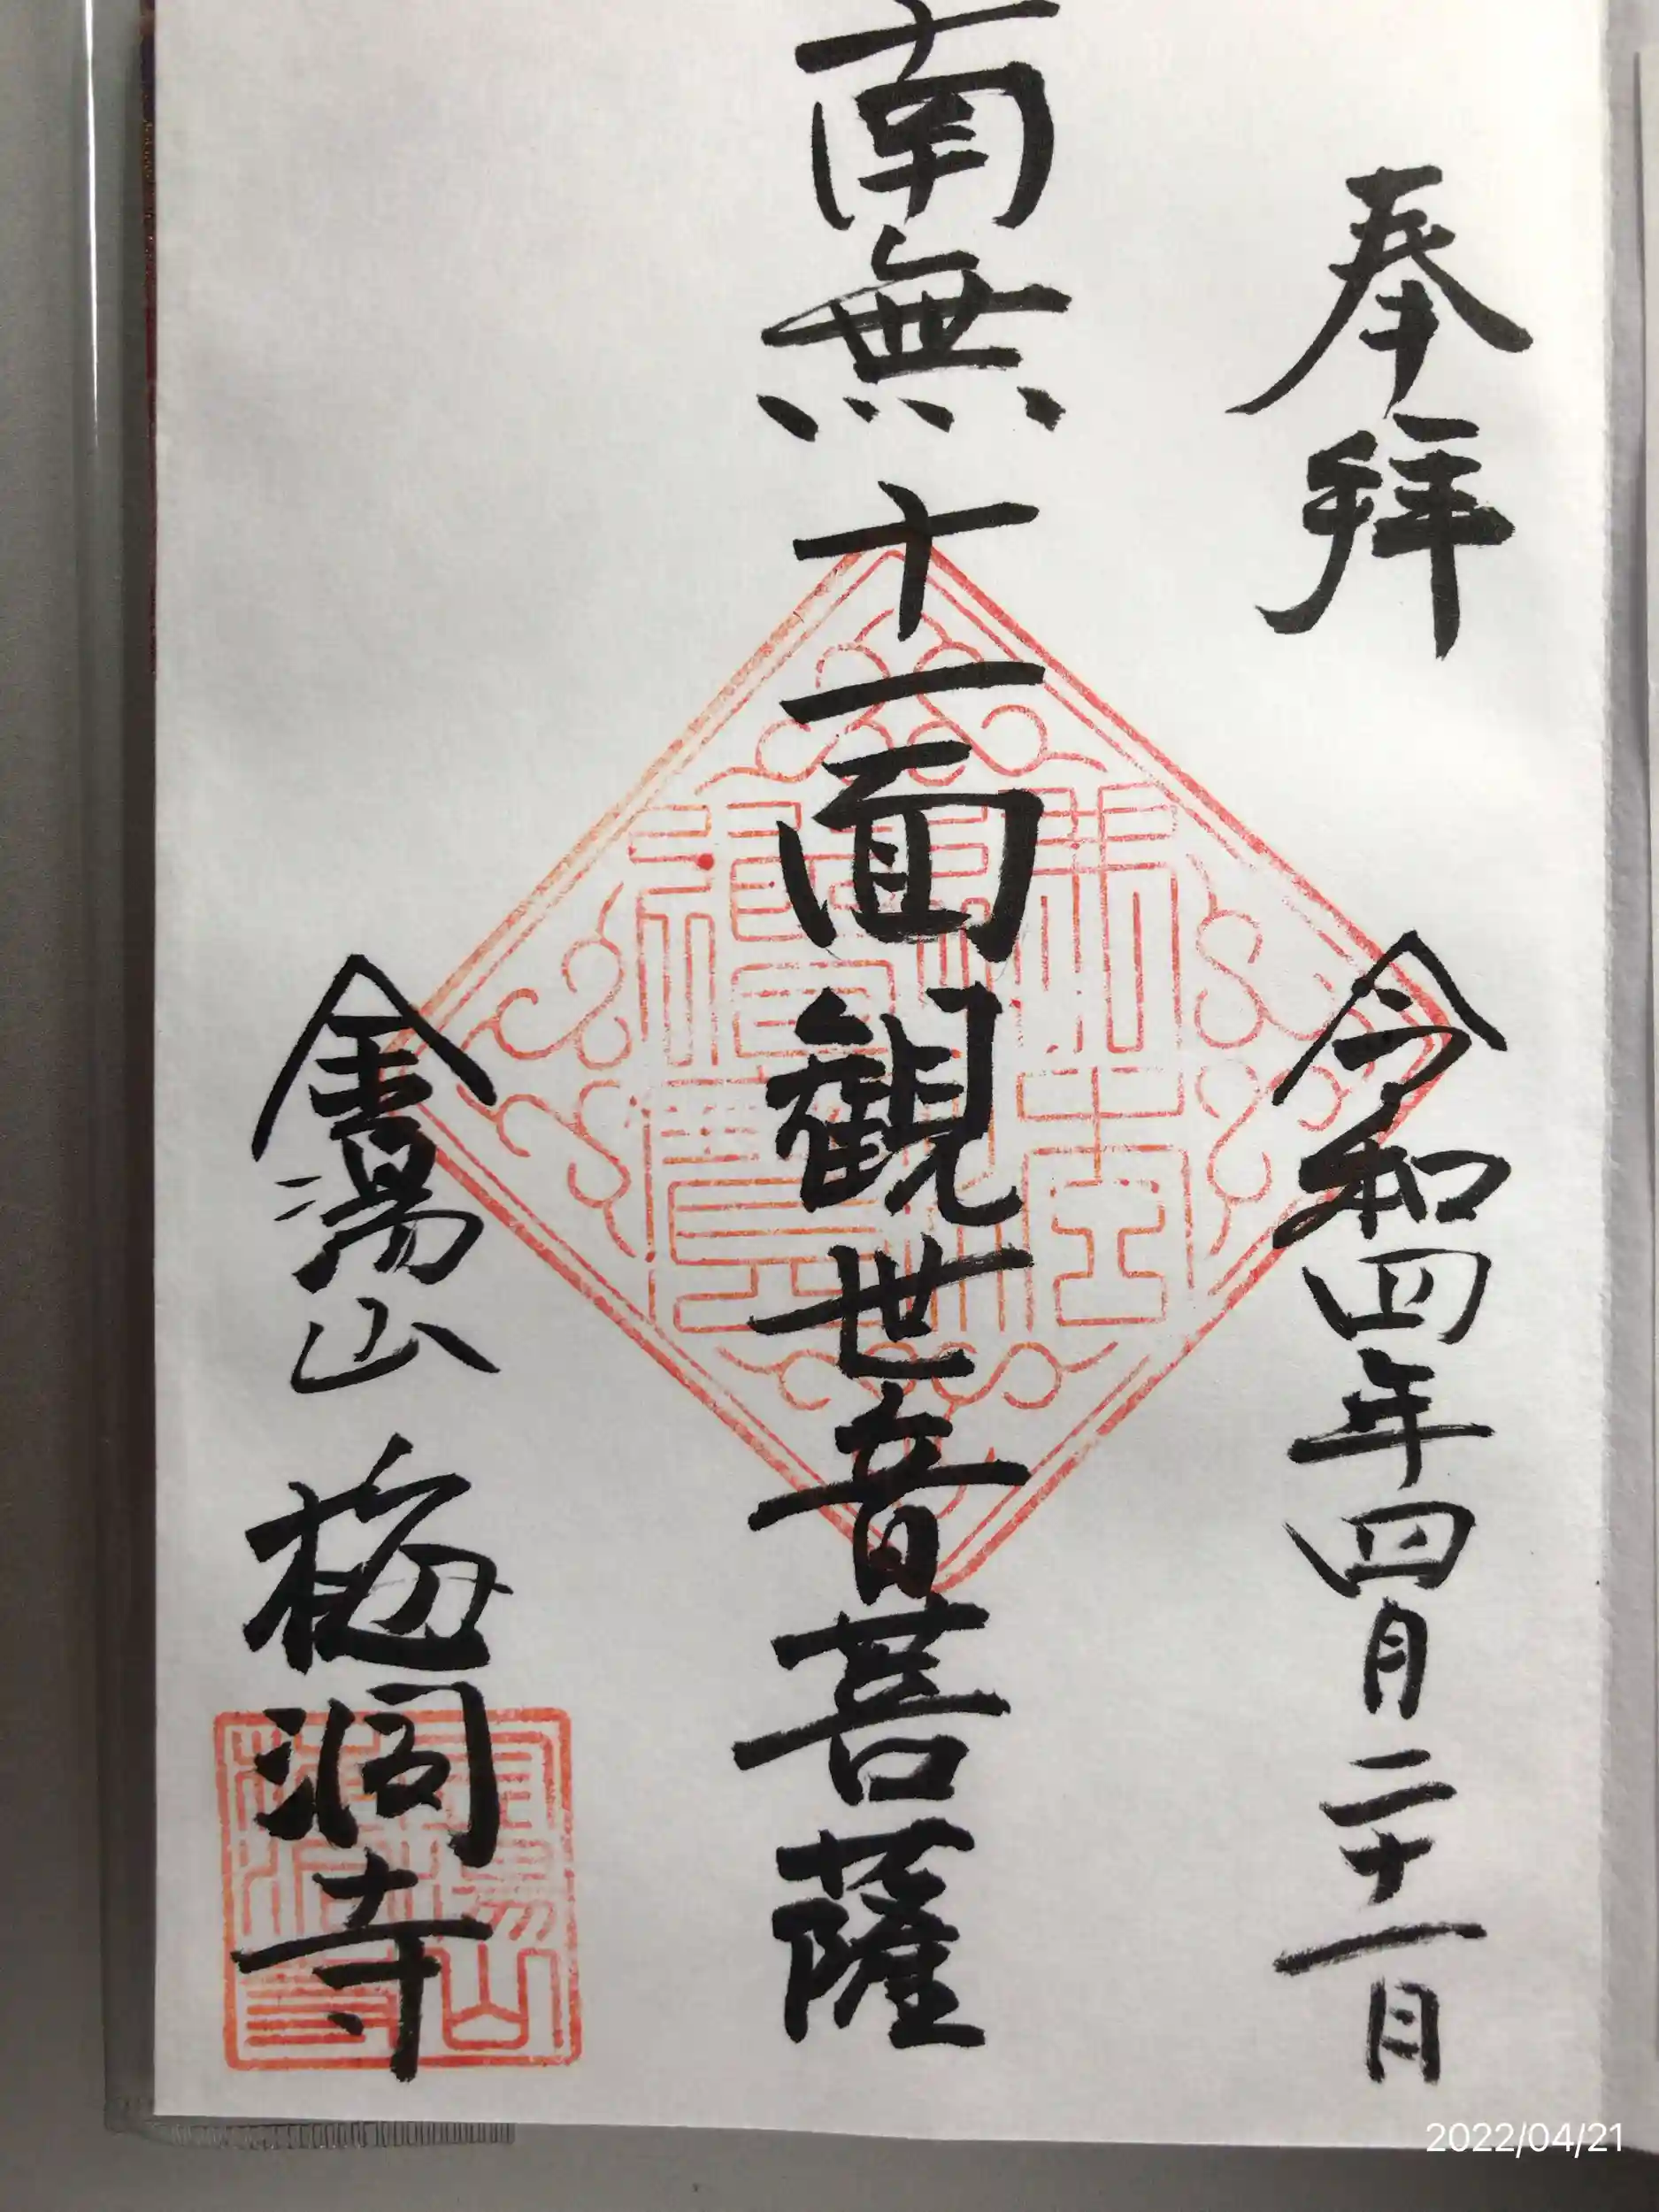 奉拝
令和四年四月二十一日
南無十一面観世音菩薩
金湯山 梅洞寺
2022/04/21